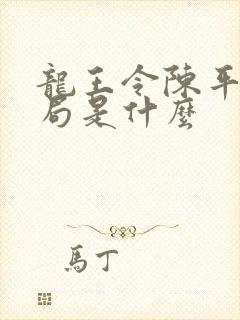 龍王令陳平
局是什麼
馬丁